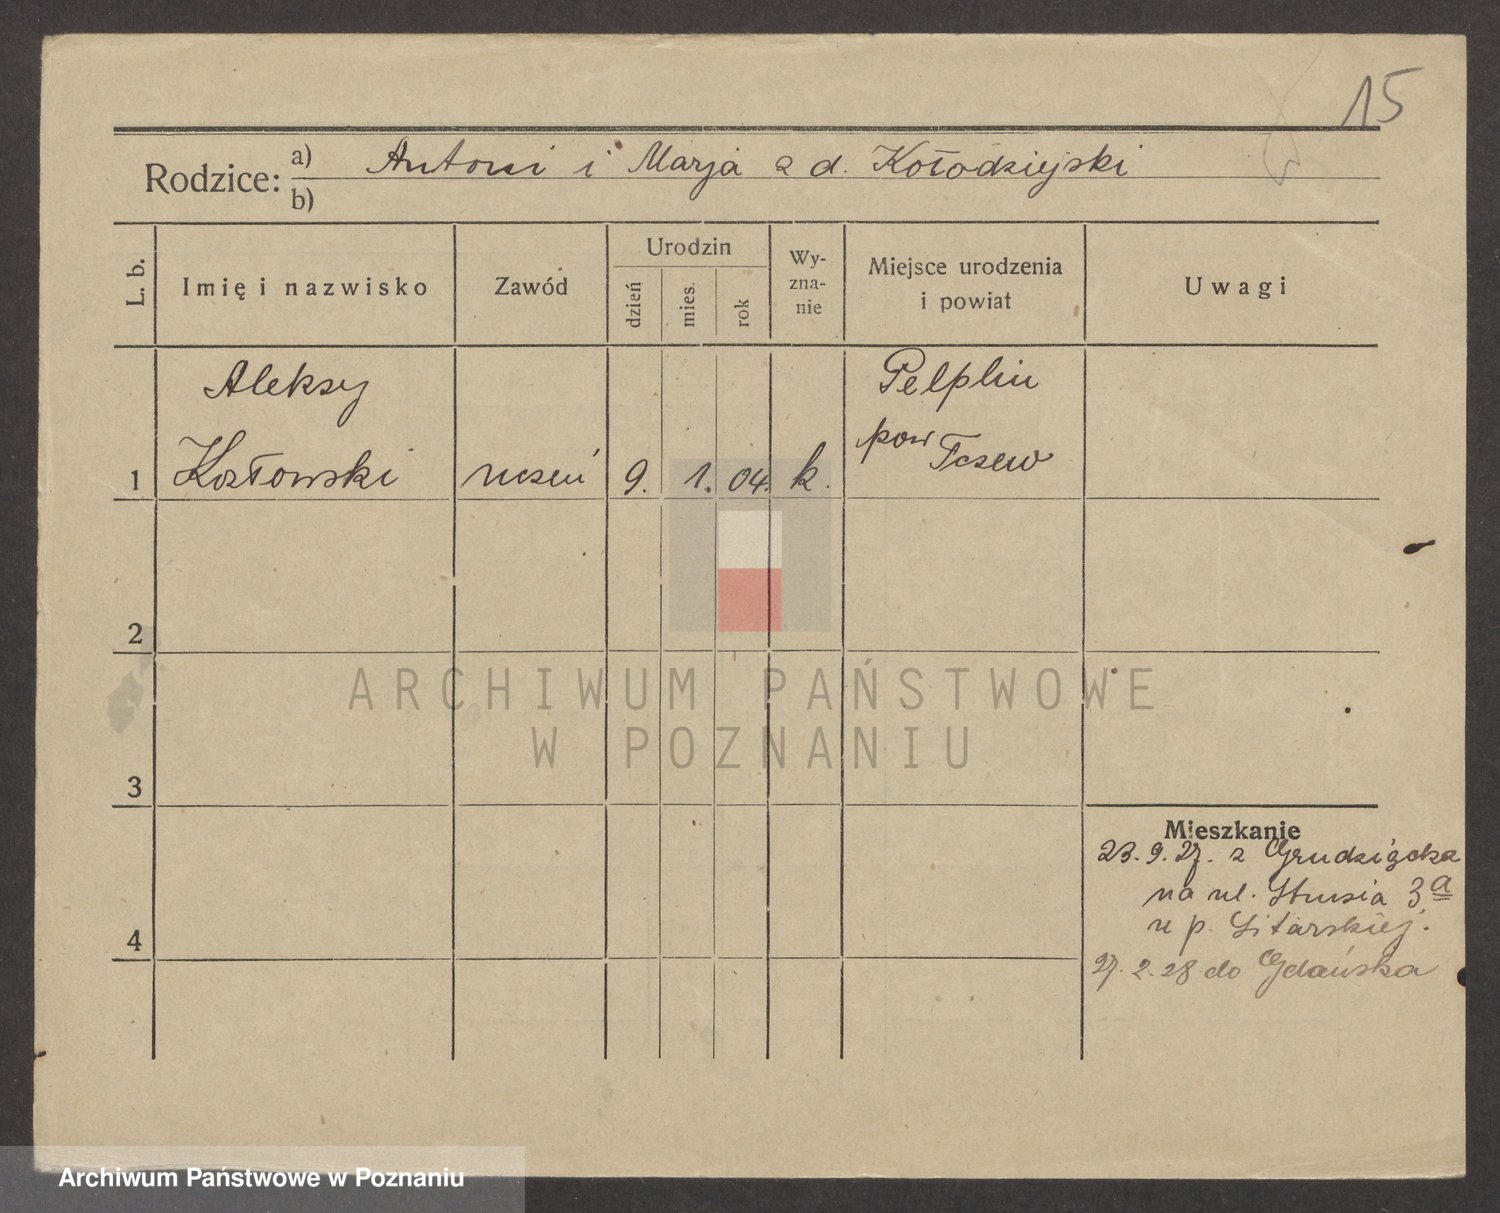 15
Rodzice: a) Antoni i Marja z d. Kołodziejski
b)
L. b.
Imię i nazwisko
Zawód
Urodzin
dzień
mies.
rok
Wy-
zna-
nie
Miejsce urodzenia
i powiat
Uwagi
Aleksy
Kozłowski
uczeń
9. 1. 04. k.
Pelplin
pow Tczew
1
2
3
4
Mieszkanie
23. 9. 27. z Grudziądza
na ul. Strusia 3a
u p. Sitarskiej.
27. 2. 28 do Gdańska
ARCHIWUM PAŃSTWOWE
W POZNANIU
Archiwum Państwowe w Poznaniu